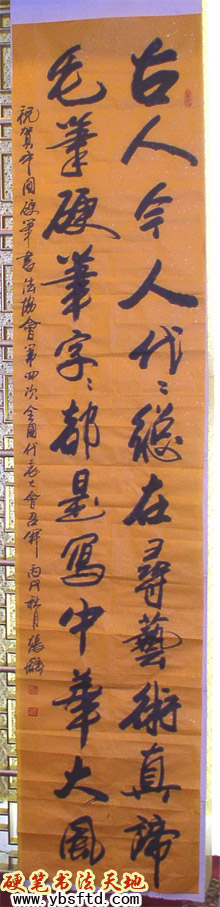 古人今人代々總在尋藝術真諦
毛筆硬筆字々都是寫中華大風
祝賀中国硬筆書法協會第四次全国代表大會召開 丙戌秋月
硬笔书法天地
www.ybsftd.com